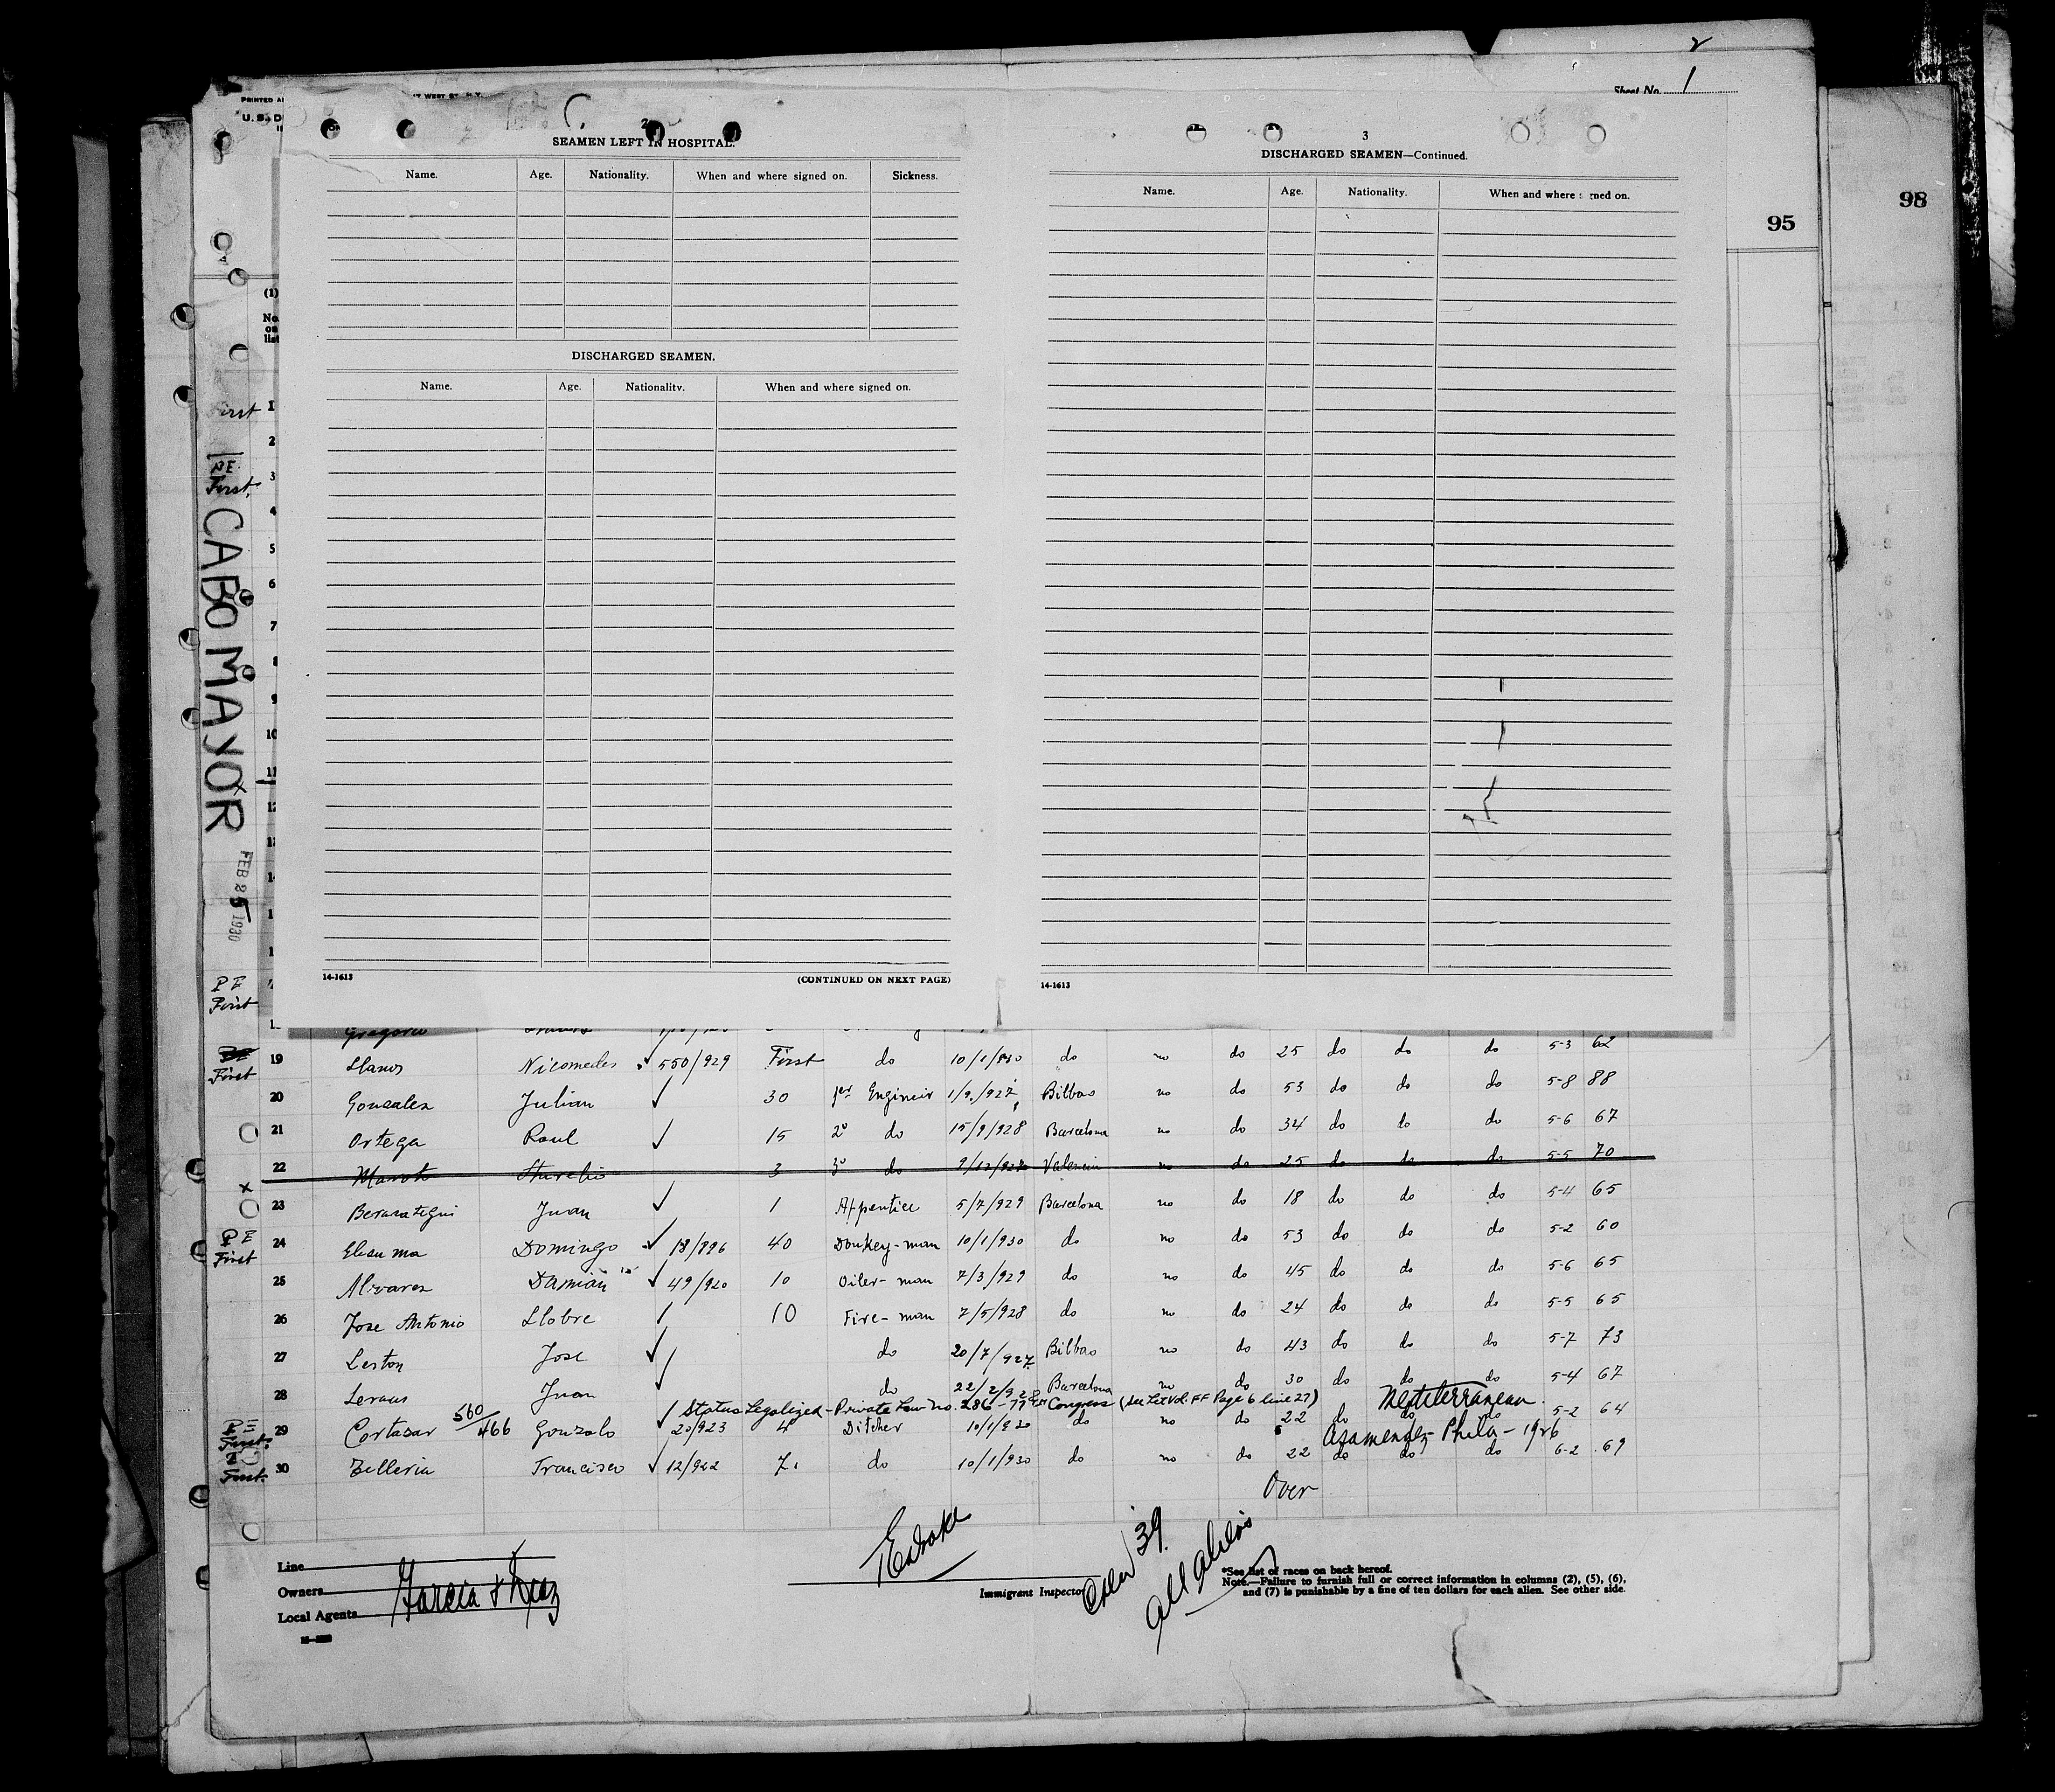 2
Sheet No. 1
PRINTED
WEST ST. N.Y.
U. S. D
2
SEAMEN LEFT IN HOSPITAL.
Name. Age. Nationality. When and where signed on. Sickness.
DISCHARGED SEAMEN.
Name. Age. Nationality. When and where signed on.
14-1613 (CONTINUED ON NEXT PAGE)
3
DISCHARGED SEAMEN—Continued.
Name. Age. Nationality. When and where signed on.
14-1613
95
98
(1)
No.
on
list
First 1
2
PE
First 3
4
5
6
7
8
9
10
11
12
CABO MAYOR
FEB 25 1930
PE
First
Gregorio
First 19 Llanos Nicomedes ✓ 550/929 First do 10/1/930 do no do 25 do do do 5-3 62
20 Gonzalez Julian ✓ 30 1er Engineir 1/9/927 Bilbao no do 53 do do do 5-8 88
21 Ortega Raul ✓ 15 2o do 15/9/928 Barcelona no do 34 do do do 5-6 67
22 Aurelio 3 3o do Valencia no do 25 do do do 5-5 70
x 23 Berasategui Juan ✓ 1 Appentice 5/7/929 Barcelona no do 18 do do do 5-4 65
PE First 24 Domingo ✓ 18/896 40 Donkey-man 10/1/930 do no do 53 do do do 5-2 60
25 Alvarez Damian ✓ 49/920 10 Oiler-man 7/3/929 do no do 45 do do do 5-6 65
26 Jose Antonio Llobre 10 Fire-man 7/5/928 do no do 24 do do do 5-5 65
27 Leston Jose ✓ do 20/7/927 Bilbao no do 43 do do do 5-7 73
28 Juan ✓ do 22/2/928 Barcelona no do 30 do do do 5-4 67
Status Legalized - Private Law no. 286 - 77th Congress (See Let Vol. FF Page 6 line 27) Mediterranean
PE First 29 Cortazar 560/466 Gonzalo ✓ 20/923 4 Ditcher 10/1/930 do no do 22 do do do 5-2 64
Asamendez Phila - 1926
First 30 Zelleria Francisco ✓ 12/922 7 do 10/1/930 do no do 22 do do do 6-2 69
Over
Line
Owners
Local Agents Garcia & Diaz
Immigrant Inspector
Crew 39
all aliens
*See list of races on back hereof.
Note.—Failure to furnish full or correct information in columns (2), (5), (6),
and (7) is punishable by a fine of ten dollars for each alien. See other side.